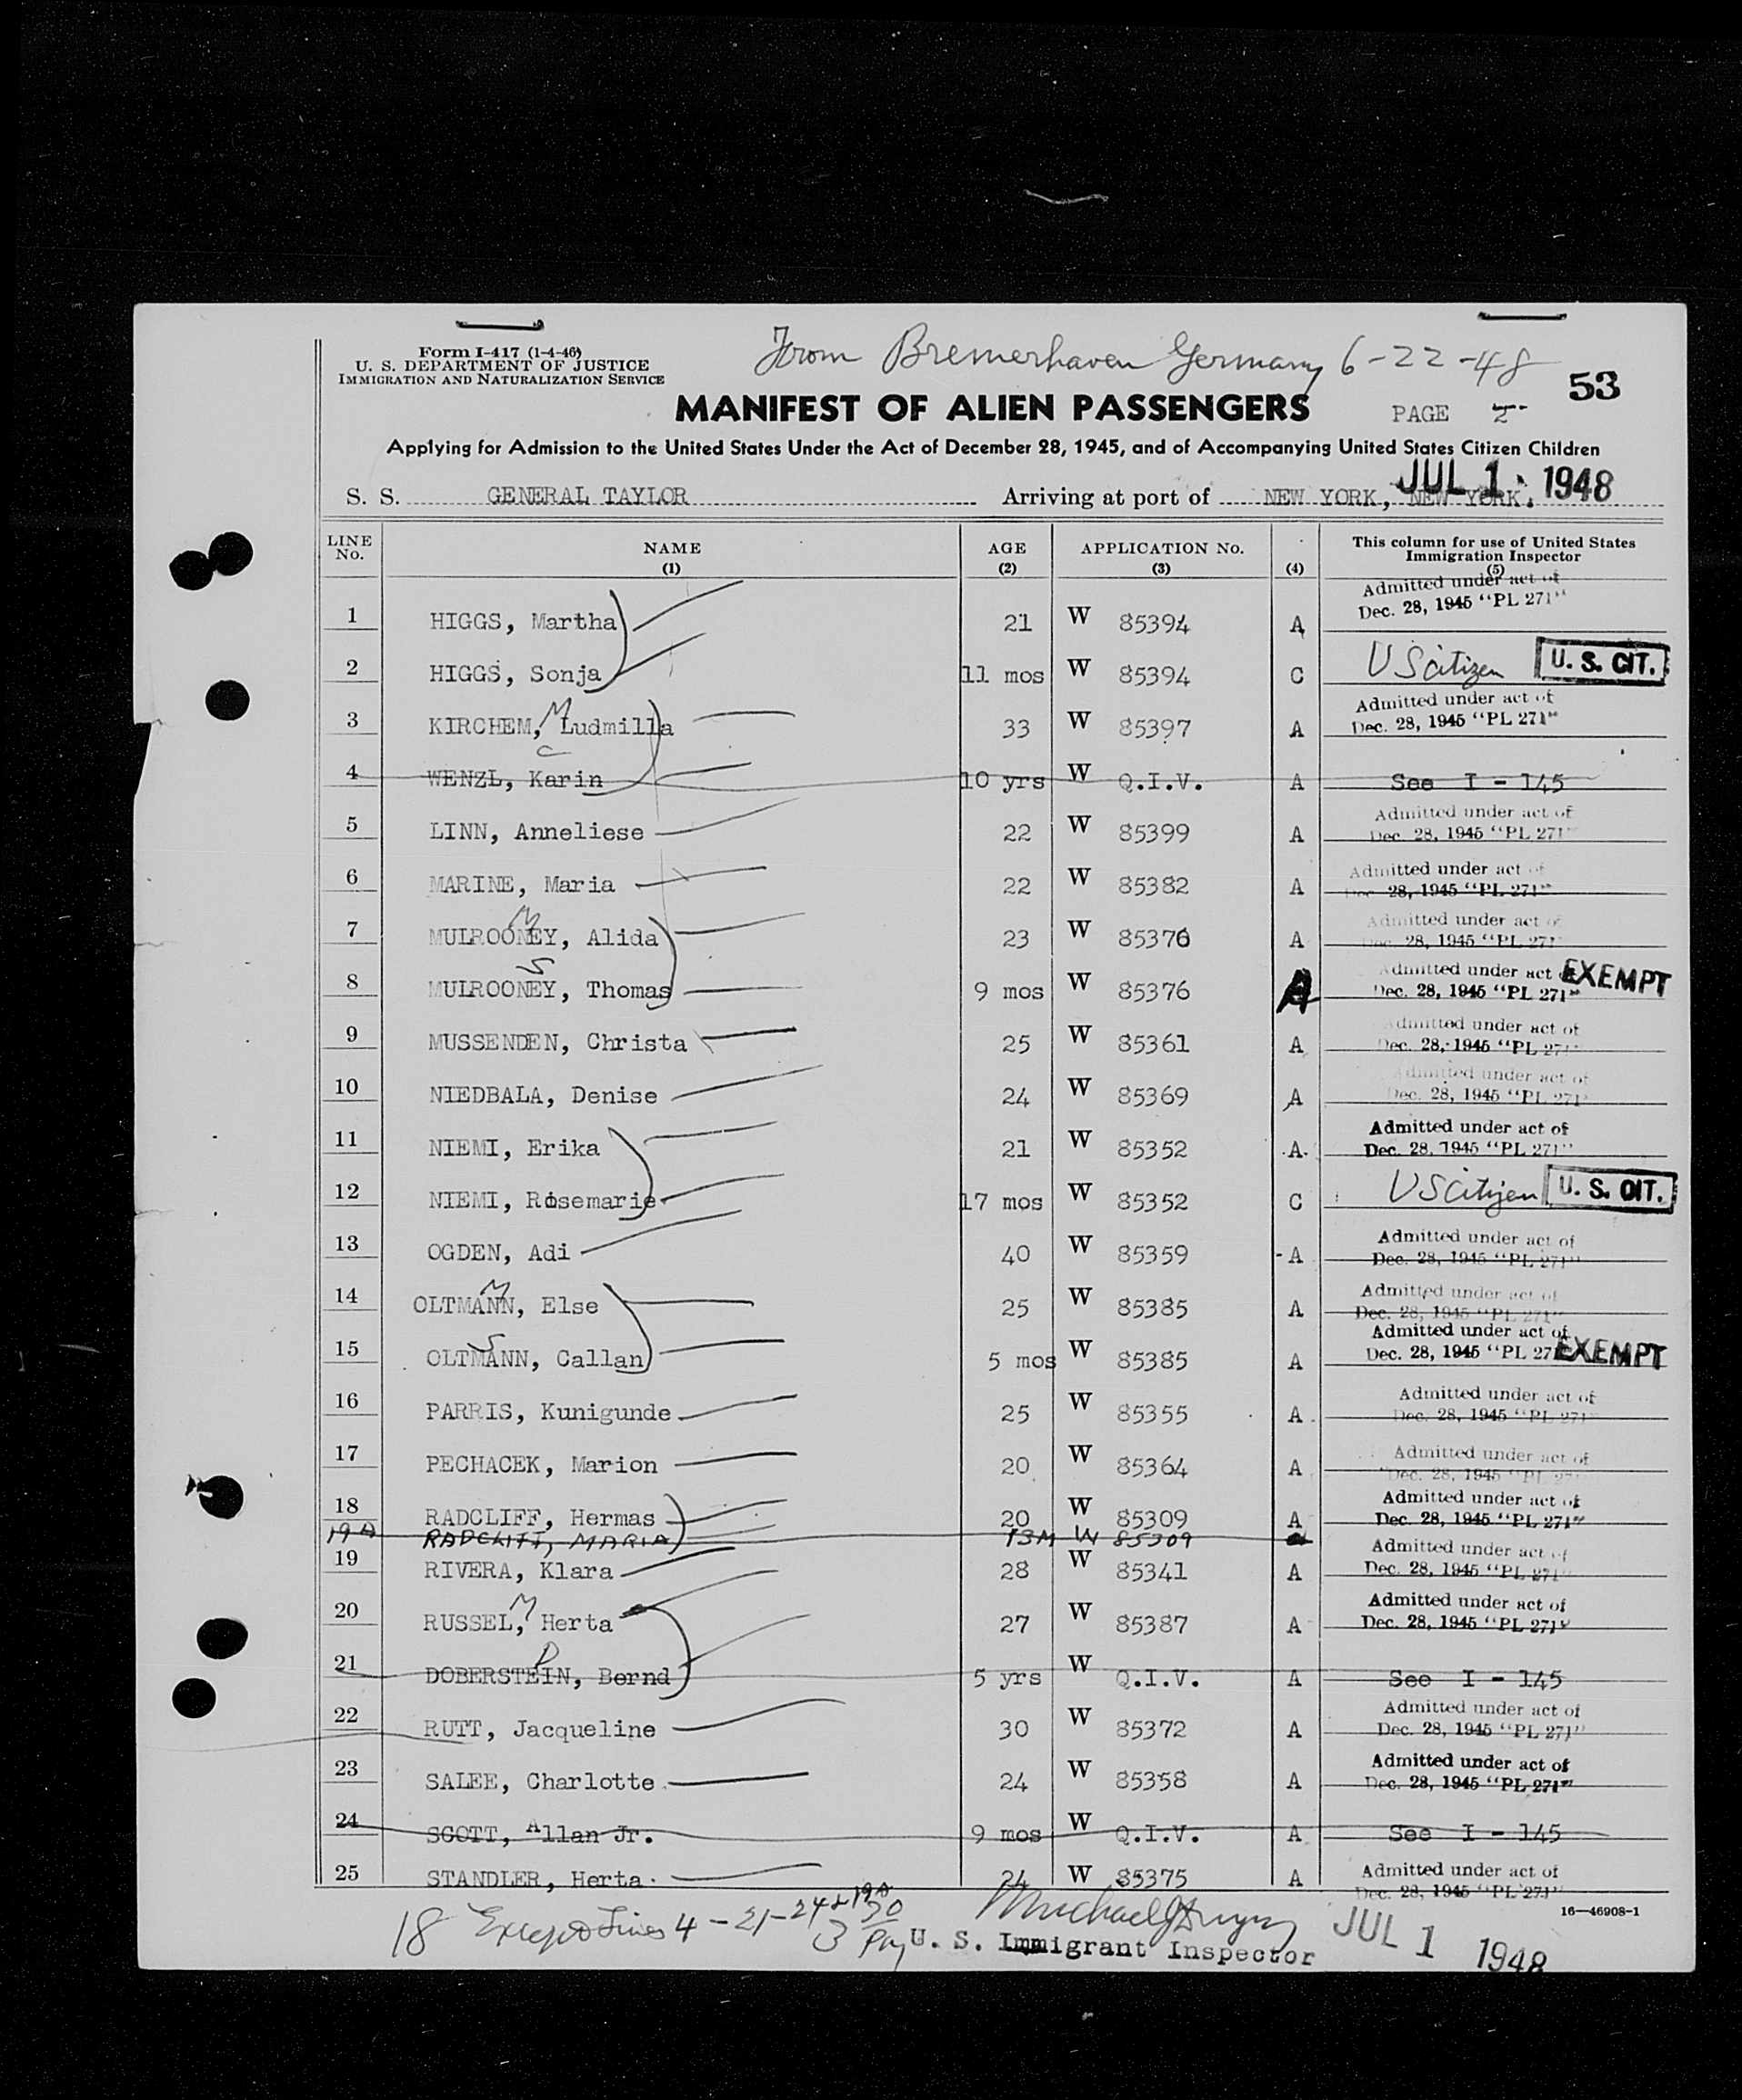 Form I-417 (1-4-46)
U. S. DEPARTMENT OF JUSTICE
IMMIGRATION AND NATURALIZATION SERVICE
From Bremerhaven Germany 6-22-48
53
MANIFEST OF ALIEN PASSENGERS
PAGE 2
Applying for Admission to the United States Under the Act of December 28, 1945, and of Accompanying United States Citizen Children
JUL 1 1948
S. S. GENERAL TAYLOR Arriving at port of NEW YORK, NEW YORK.
LINE No. NAME (1) AGE (2) APPLICATION No. (3) (4) This column for use of United States Immigration Inspector (5)
1 HIGGS, Martha 21 W 85394 A Admitted under act of Dec. 28, 1945 "PL 271"
2 HIGGS, Sonja 11 mos W 85394 C US citizen U. S. CIT.
3 KIRCHEM, M Ludmilla 33 W 85397 A Admitted under act of Dec. 28, 1945 "PL 271"
4 WENZL, Karin 10 yrs W Q.I.V. A See I - 145
5 LINN, Anneliese 22 W 85399 A Admitted under act of Dec. 28, 1945 "PL 271"
6 MARINE, Maria 22 W 85382 A Admitted under act of Dec. 28, 1945 "PL 271"
7 MULROONEY, M Alida 23 W 85376 A Admitted under act of Dec. 28, 1945 "PL 271"
8 MULROONEY, S Thomas 9 mos W 85376 A Admitted under act of Dec. 28, 1945 "PL 271" EXEMPT
9 MUSSENDEN, Christa 25 W 85361 A Admitted under act of Dec. 28, 1945 "PL 271"
10 NIEDBALA, Denise 24 W 85369 A Admitted under act of Dec. 28, 1945 "PL 271"
11 NIEMI, Erika 21 W 85352 A Admitted under act of Dec. 28, 1945 "PL 271"
12 NIEMI, Rosemarie 17 mos W 85352 C US citizen U. S. CIT.
13 OGDEN, Adi 40 W 85359 A Admitted under act of Dec. 28, 1945 "PL 271"
14 OLTMANN, M Else 25 W 85385 A Admitted under act of Dec. 28, 1945 "PL 271"
15 OLTMANN, S Callan 5 mos W 85385 A Admitted under act of Dec. 28, 1945 "PL 271" EXEMPT
16 PARRIS, Kunigunde 25 W 85355 A Admitted under act of Dec. 28, 1945 "PL 271"
17 PECHACEK, Marion 20 W 85364 A Admitted under act of Dec. 28, 1945 "PL 271"
18 RADCLIFF, Hermas 20 W 85309 A Admitted under act of Dec. 28, 1945 "PL 271"
19A RADCLIFF, MARIA 13M W 85309
19 RIVERA, Klara 28 W 85341 A Admitted under act of Dec. 28, 1945 "PL 271"
20 RUSSEL, M Herta 27 W 85387 A Admitted under act of Dec. 28, 1945 "PL 271"
21 DOBERSTEIN, D Bernd 5 yrs W Q.I.V. A See I - 145
22 RUTT, Jacqueline 30 W 85372 A Admitted under act of Dec. 28, 1945 "PL 271"
23 SALEE, Charlotte 24 W 85358 A Admitted under act of Dec. 28, 1945 "PL 271"
24 SCOTT, Allan Jr. 9 mos W Q.I.V. A See I - 145
25 STANDLER, Herta 24 W 85375 A Admitted under act of Dec. 28, 1945 "PL 271"
16—46908-1
18 Except Lines 4 - 21 - 24 & 19A
U. S. Immigrant Inspector
JUL 1 1948